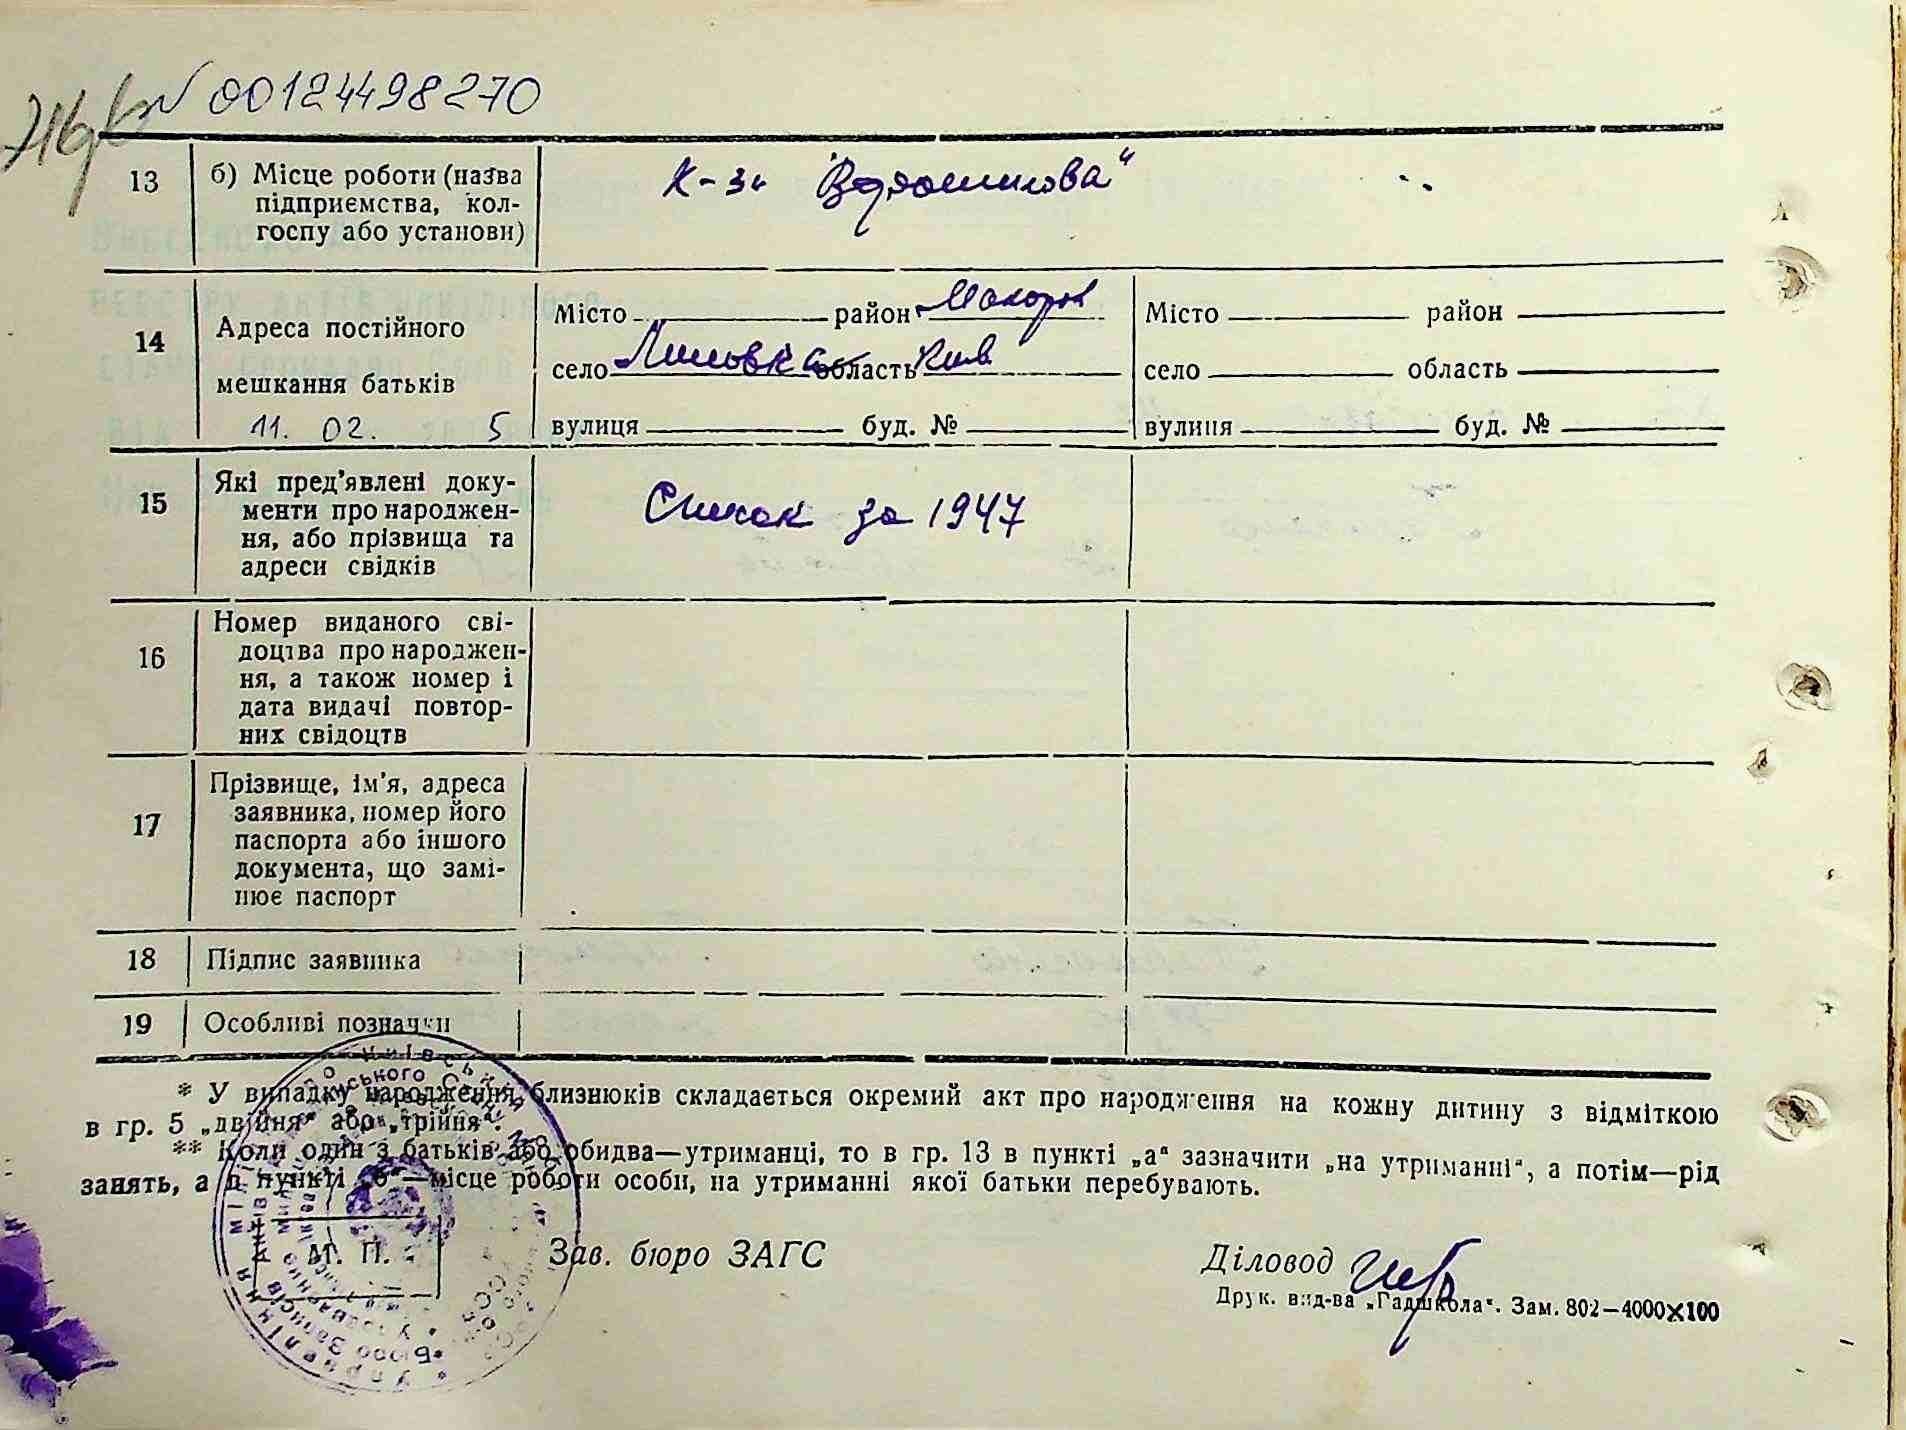 N 00124498270
13 б) Місце роботи (назва
підприємства, кол-
госпу або установи)
К-з "Ворошилова"
14 Адреса постійного
мешкання батьків
11. 02. 5
Місто район Макарів
село Липовка область Київ
вулиця буд. №
Місто район
село область
вулиця буд. №
15 Які пред'явлені доку-
менти про народжен-
ня, або прізвища та
адреси свідків
Список за 1947
16 Номер виданого сві-
доцтва про народжен-
ня, а також номер і
дата видачі повтор-
них свідоцтв
17 Прізвище, ім'я, адреса
заявника, номер його
паспорта або іншого
документа, що замі-
нює паспорт
18 Підпис заявника
19 Особливі позначки
* У випадку народження близнюків складається окремий акт про народження на кожну дитину з відміткою
в гр. 5 „двійня“ або „трійня“.
** Коли один з батьків або обидва—утриманці, то в гр. 13 в пункті „а“ зазначити „на утриманні“, а потім—рід
занять, а в пункті „б“—місце роботи особи, на утриманні якої батьки перебувають.
М. П.
Зав. бюро ЗАГС
Діловод
Друк. вид-ва „Радшкола“. Зам. 802—4000×100